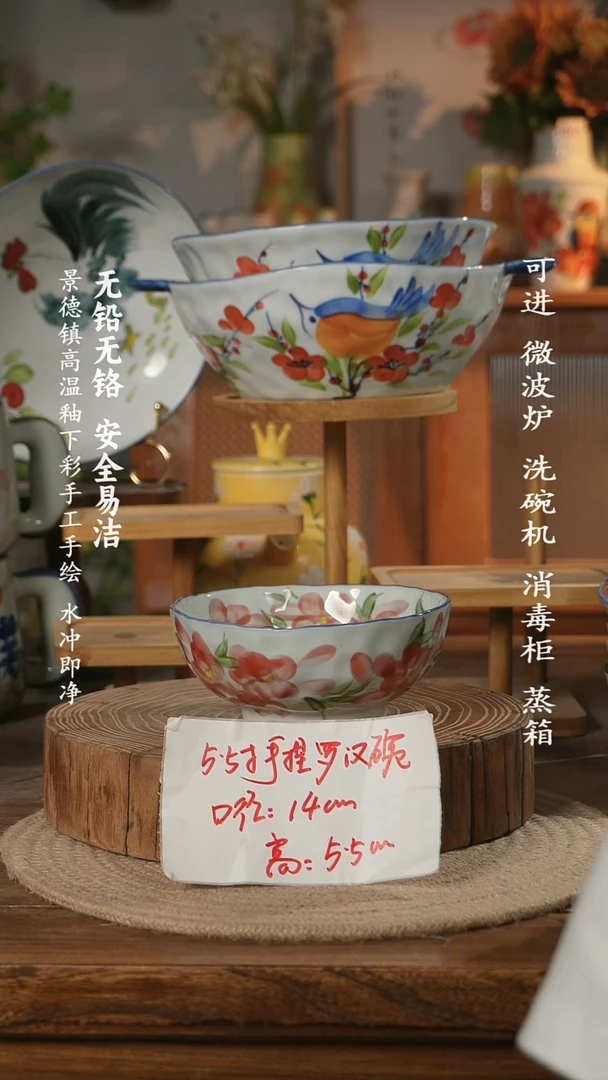 可进 微波炉 洗碗机 消毒柜 蒸箱
无铅无铬 安全易洁
景德镇高温釉下彩手工手绘 水冲即净
5.5寸手捏罗汉碗
口径:14cm
高:5.5cm